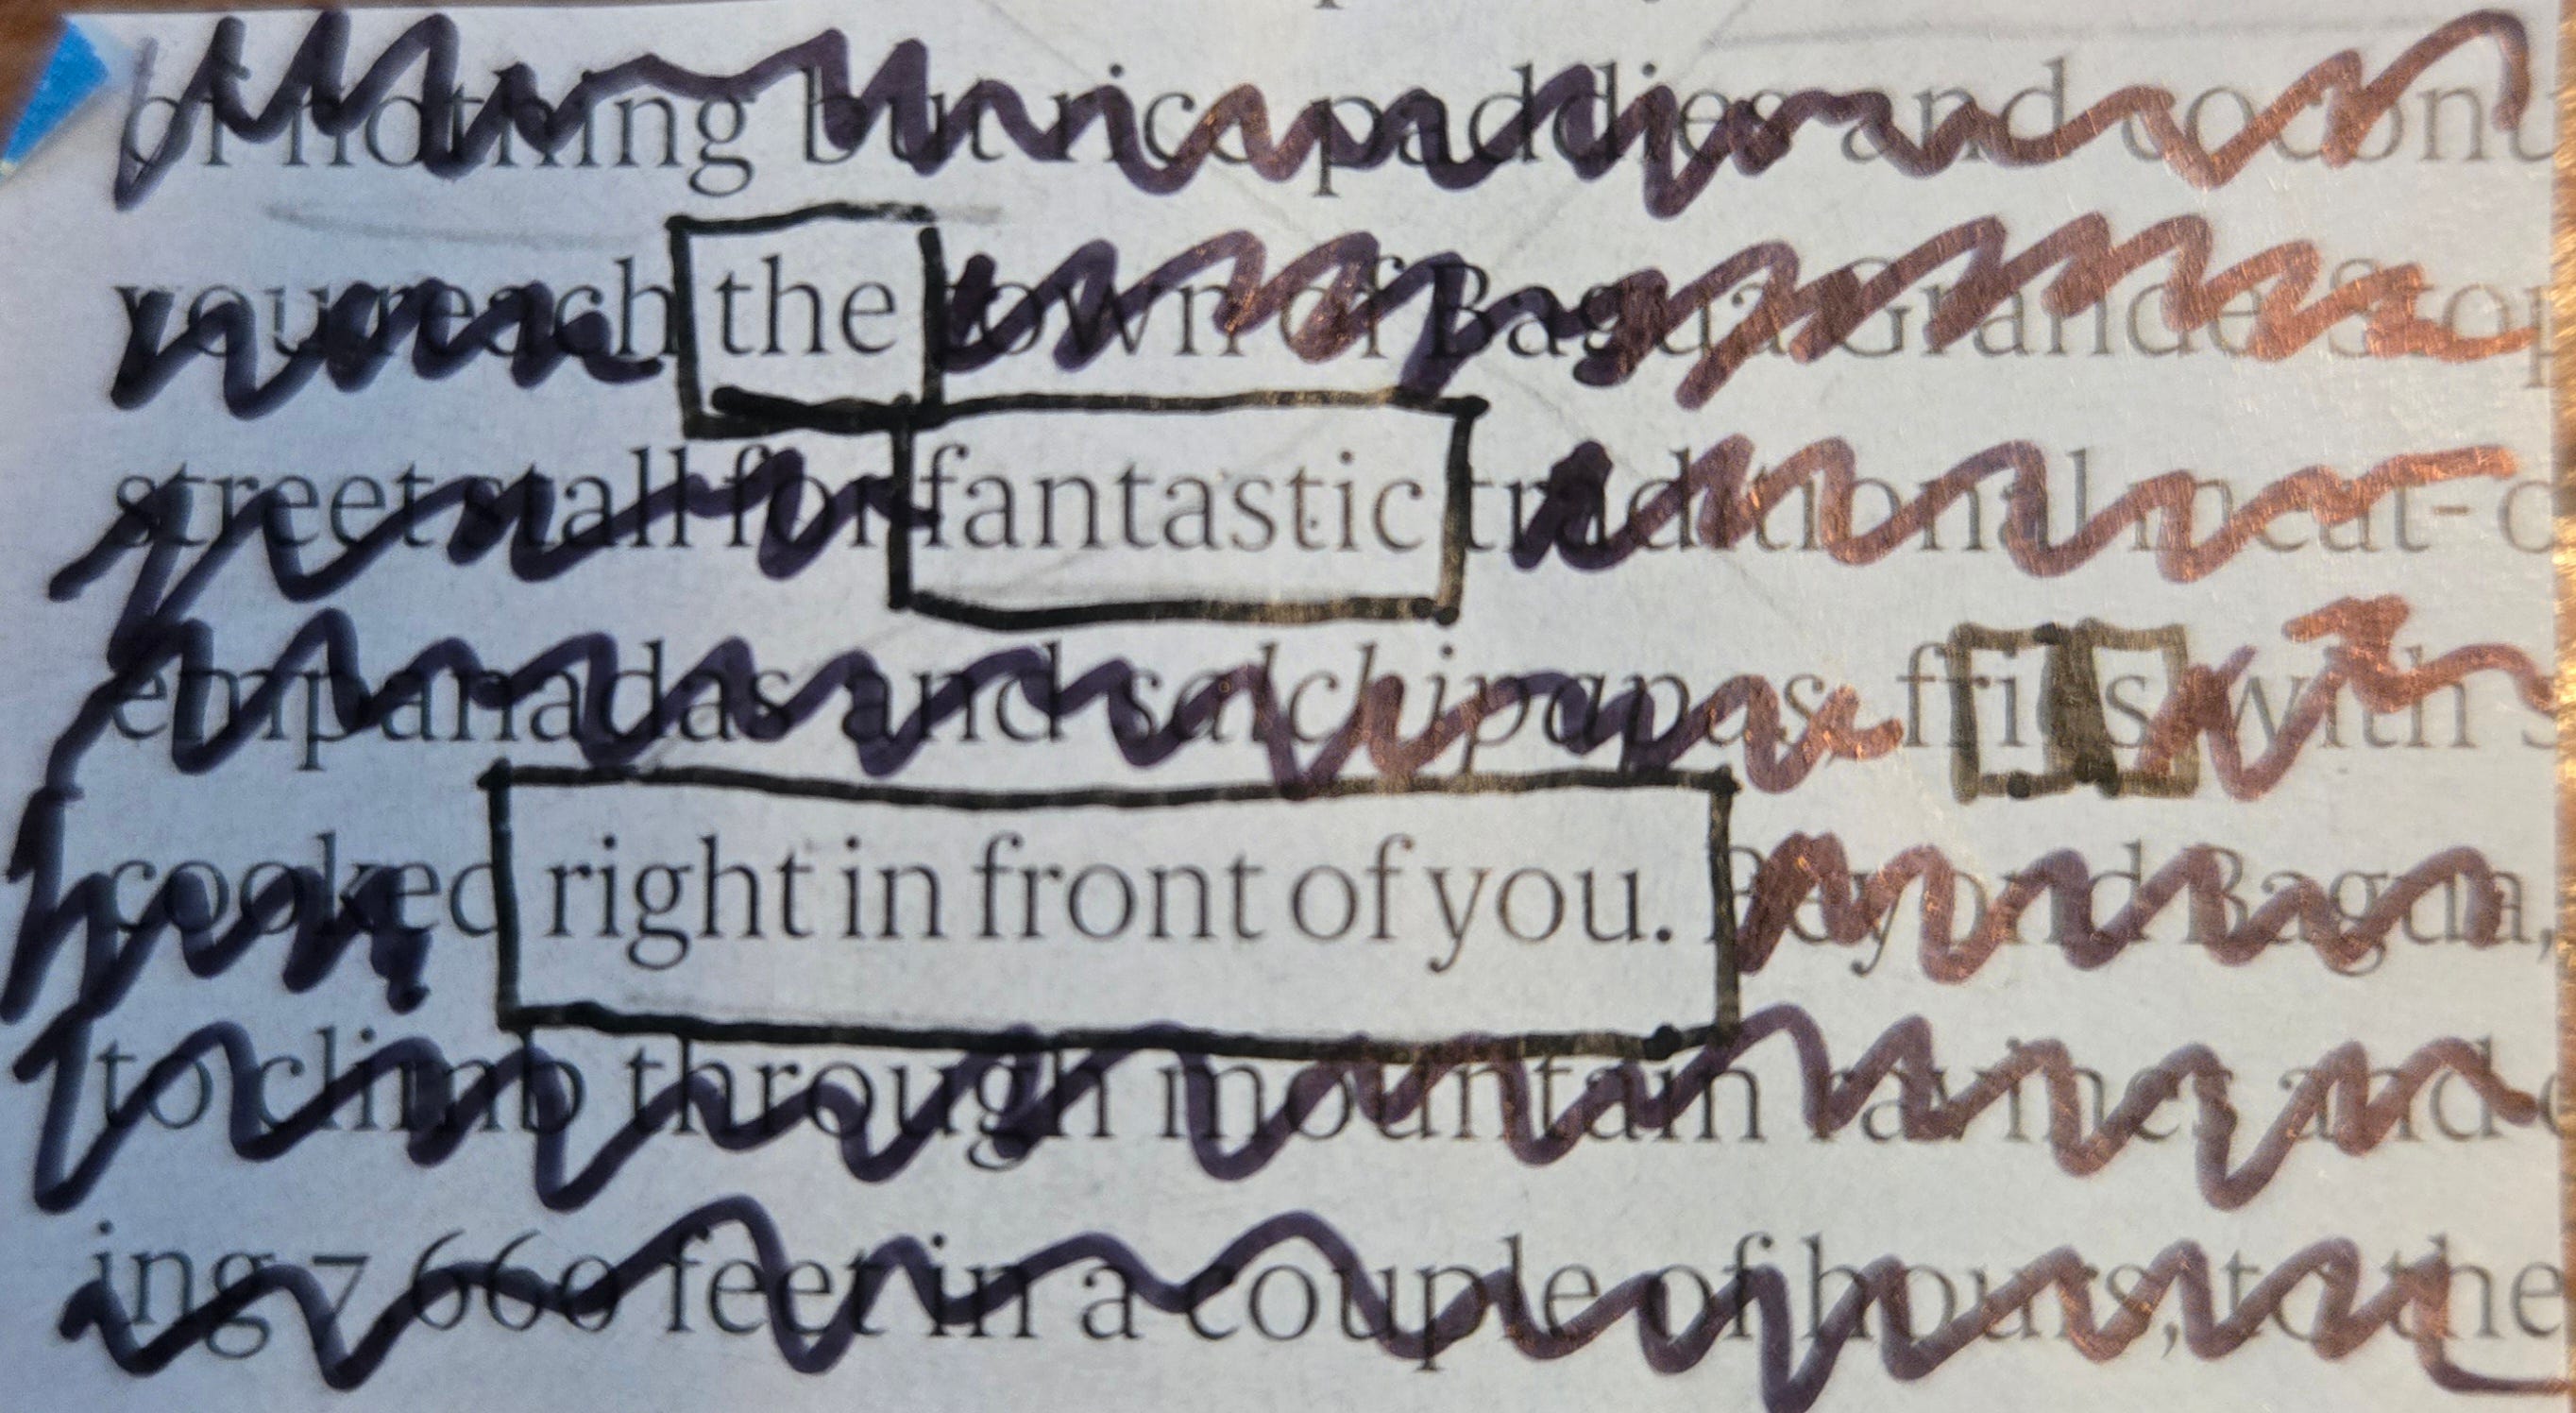 of nothing but rice paddies and coconu
you reach the town of Bagua Grande. Stop
street stall for fantastic traditional meat-o
empanadas and salchipapas, fries with s
cooked right in front of you. Beyond Bagua,
to climb through mountain ravines and
ing 7,660 feet in a couple of hours, to the